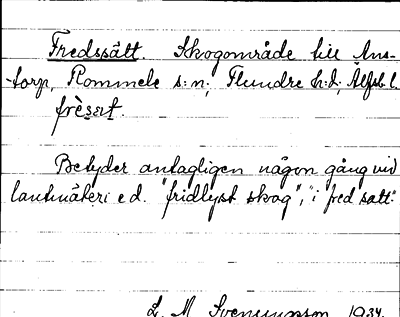 Fredssätt. Skogområde till Åns-
torp, Rommele s:n; Flundre h:d; Älfsb. l.
frèsert.
Betyder antagligen någon gång vid
lantmäteri e.d. "fridlyst skog", "i fred satt."
L. M. Svenungsson 1934.